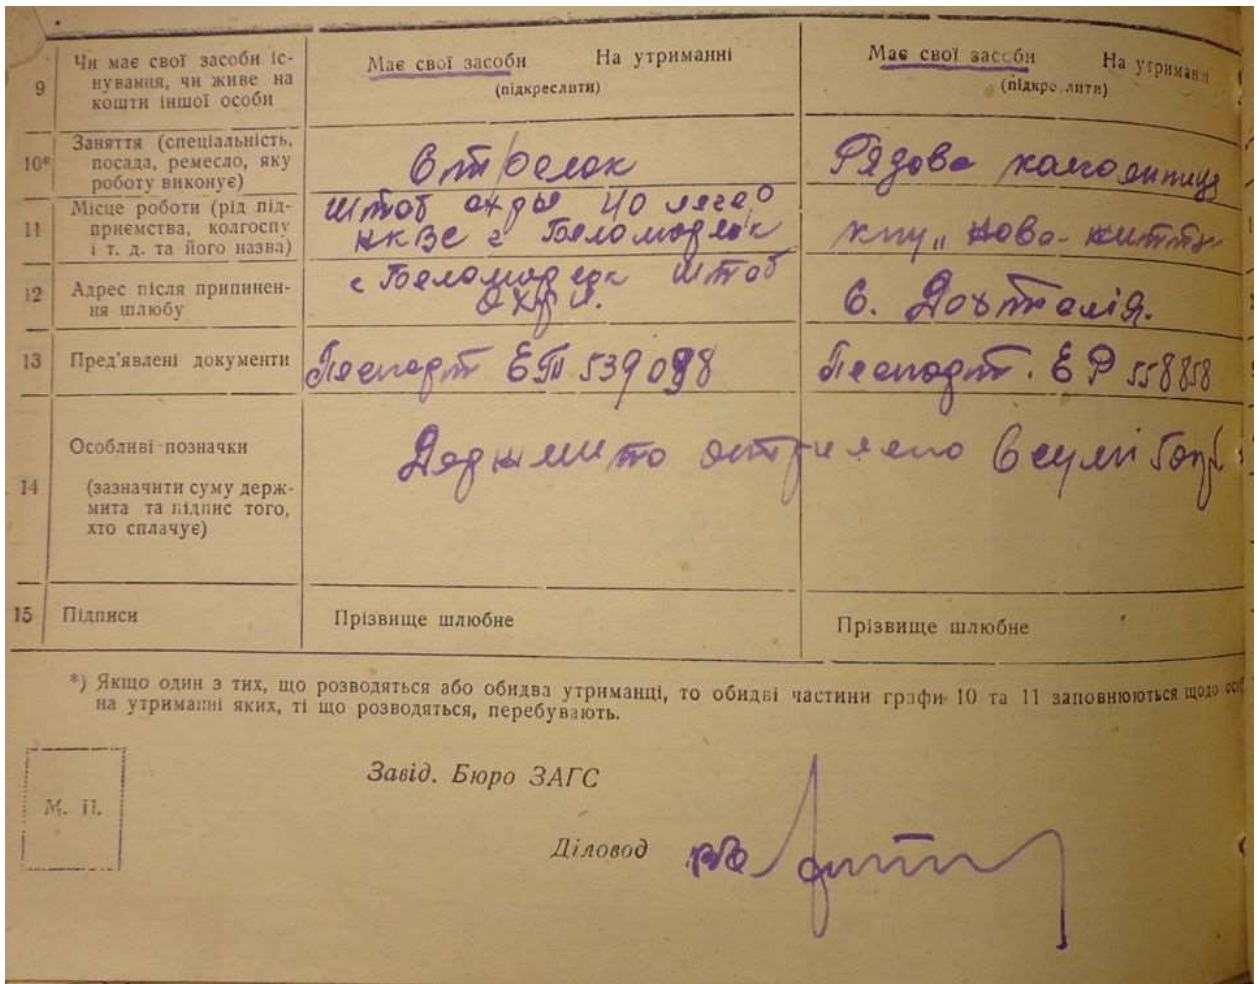 9 Чи має свої засоби іс-
нування, чи живе на
кошти іншої особи
Має свої засоби На утриманні
(підкреслити)
Має свої засоби На утриманні
(підкреслити)
10* Заняття (спеціальність,
посада, ремесло, яку
роботу виконує)
Стрелок
Рядова
11 Місце роботи (рід під-
приємства, колгоспу
і т. д. та його назва)
Штаб
НКВС г Беломорск
12 Адрес після припинен-
ня шлюбу
г Беломорск Штаб
с.
13 Пред'явлені документи
Паспорт ЕП 539098
Паспорт. ЕР 558858
14 Особливі позначки
(зазначити суму держ-
мита та підпис того,
хто сплачує)
Держмито в сумі
15 Підписи
Прізвище шлюбне
Прізвище шлюбне
*) Якщо один з тих, що розводяться або обидва утриманці, то обидві частини графи 10 та 11 заповнюються щодо
на утриманні яких, ті що розводяться, перебувають.
М. П.
Завід. Бюро ЗАГС
Діловод